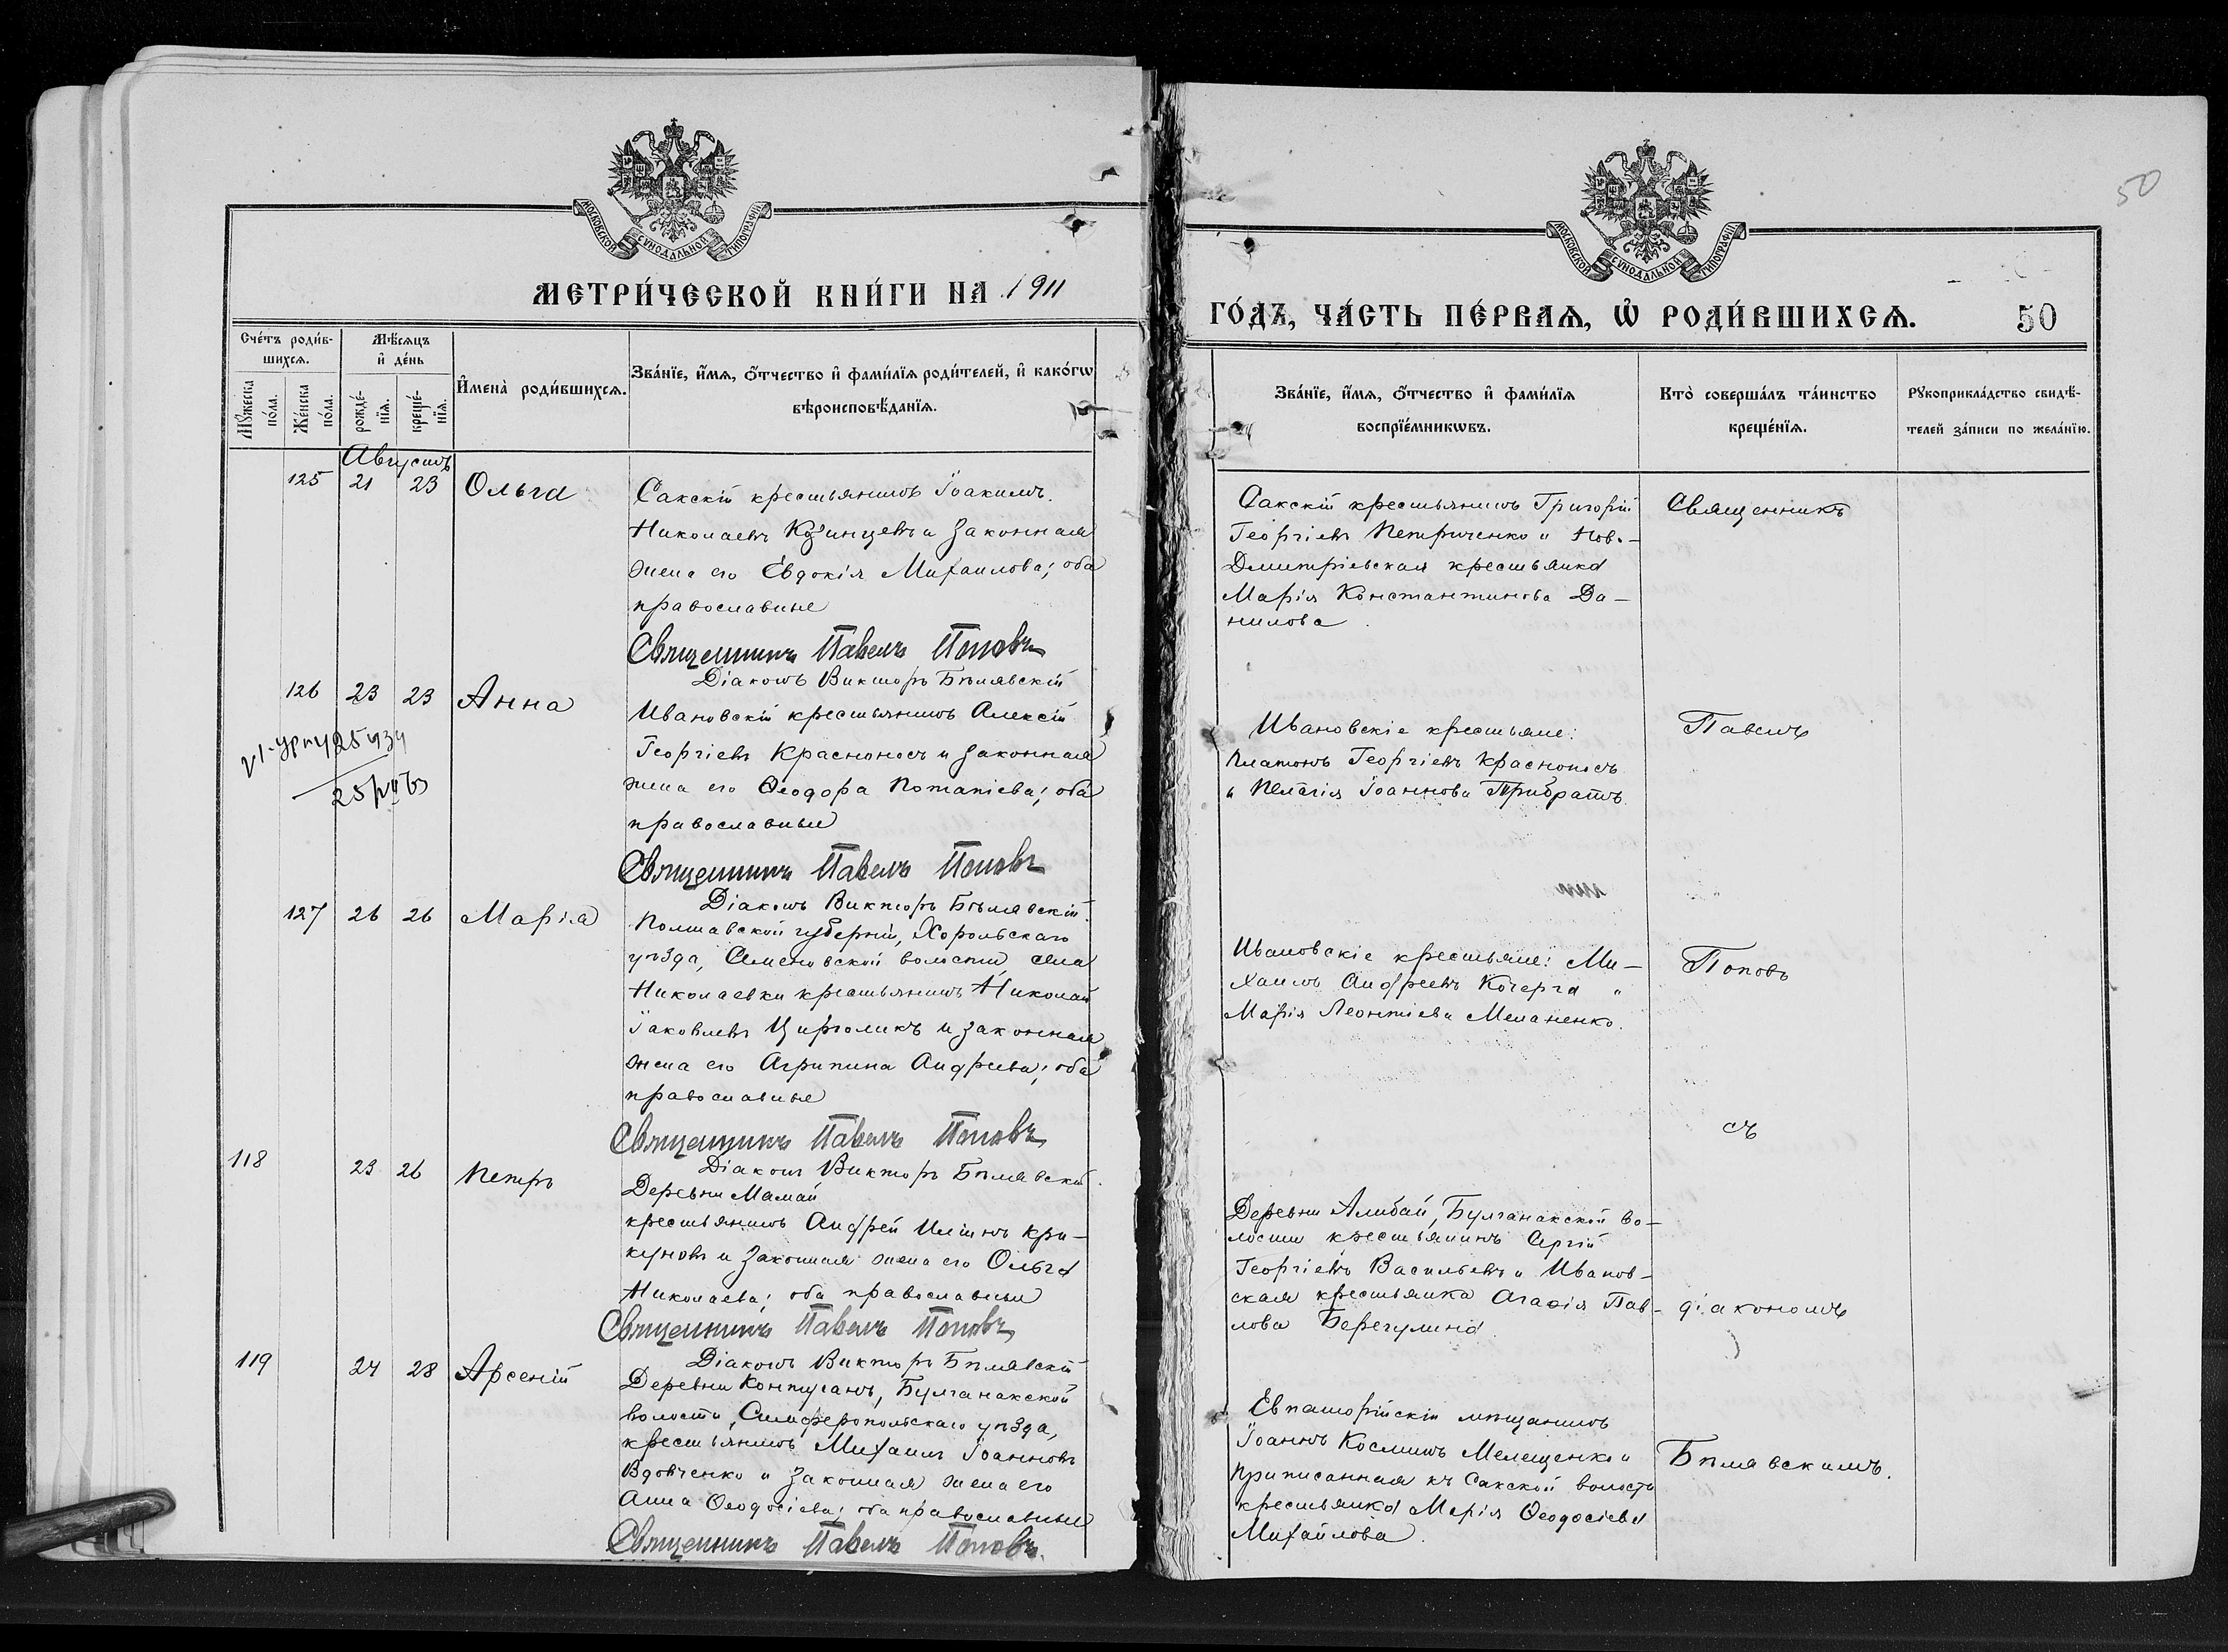 МОСКОВСКОЙ СѴНОДАЛЬНОЙ ТИПОГРАФІИ
МЕТРИ́ЧЕСКОЙ КНИ́ГИ НА 1911
Сче́тъ роди́в-
шихсѧ.
Мѣ́сѧцъ
и҆ де́нь
Мꙋ́жеска
по́ла.
Же́нска
по́ла.
рожде́-
нїѧ.
креще́-
нїѧ.
И҆мена̀ роди́вшихсѧ.
Зва́нїе, и҆́мѧ, ѻ҆́тчество и҆ фами́лїѧ роди́телей, и҆ како́гѡ
вѣроисповѣ́данїѧ.
Августъ
125 21 23 Ольга
Сакскій крестьянинъ Іоакимъ
Николаевъ Козинцевъ и законная
жена его Евдокія Михаилова; оба
православные
Священникъ Павелъ Поповъ
Діаконъ Викторъ Бѣлявскій
126 23 23 Анна
Ивановскій крестьянинъ Алексій
Георгіевъ Красноносъ и законная
жена его Ѳеодора Потапіева; оба
православные
Священникъ Павелъ Поповъ
Діаконъ Викторъ Бѣлявскій
127 26 26 Марія
Полтавской губерніи, Хорольскаго
уѣзда, Семеновской волости, села
Николаевки крестьянинъ Николай
Іаковлевъ Цифроликъ и законная
жена его Агрипина Андреева; оба
православные
Священникъ Павелъ Поповъ
Діаконъ Викторъ Бѣлявскій
118 23 26 Петръ
Деревни Мамай
крестьянинъ Андрей Иліинъ Кри-
куновъ и законная жена его Ольга
Николаева; оба православные
Священникъ Павелъ Поповъ
Діаконъ Викторъ Бѣлявскій
119 24 28 Арсеній
Деревни Контуганъ, Булганакской
волости, Симферопольскаго уѣзда,
крестьянинъ Михаилъ Іоанновъ
Вдовченко и законная жена его
Анна Ѳеодосіева; оба православные
Священникъ Павелъ Поповъ
50
МОСКОВСКОЙ СѴНОДАЛЬНОЙ ТИПОГРАФІИ
ГО́ДЪ, ЧА́СТЬ ПЕ́РВАѦ, Ѡ҆ РОДИ́ВШИХСѦ. 50
Зва́нїе, и҆́мѧ, ѻ҆́тчество и҆ фами́лїѧ
воспрїе́мникѡвъ.
Кто̀ соверша́лъ та́инство
креще́нїѧ.
Рꙋкоприкла́дство свидѣ́-
телей за́писи по жела́нїю.
Сакскій крестьянинъ Григорій
Георгіевъ Петриченко и Ново-
Дмитріевская крестьянка
Марія Константинова Да-
нилова
Священникъ
Ивановскіе крестьяне:
Платонъ Георгіевъ Красноносъ
и Пелагія Іоаннова Прибратъ
Павелъ
Ивановскіе крестьяне: Ми-
хаилъ Андреевъ Кочерга и
Марія Леонтіева Меланенко.
Поповъ
съ
Деревни Алибай, Булганакской во-
лости крестьянинъ Сергій
Георгіевъ Васильевъ и Иванов-
ская крестьянка Агаѳія Пав-
лова Берегулина
діакономъ
Евпаторійскій мѣщанинъ
Іоаннъ Косминъ Мелещенко и
приписанная къ Сакской волости
крестьянка Марія Ѳеодосіева
Михайлова.
Бѣлявскимъ.